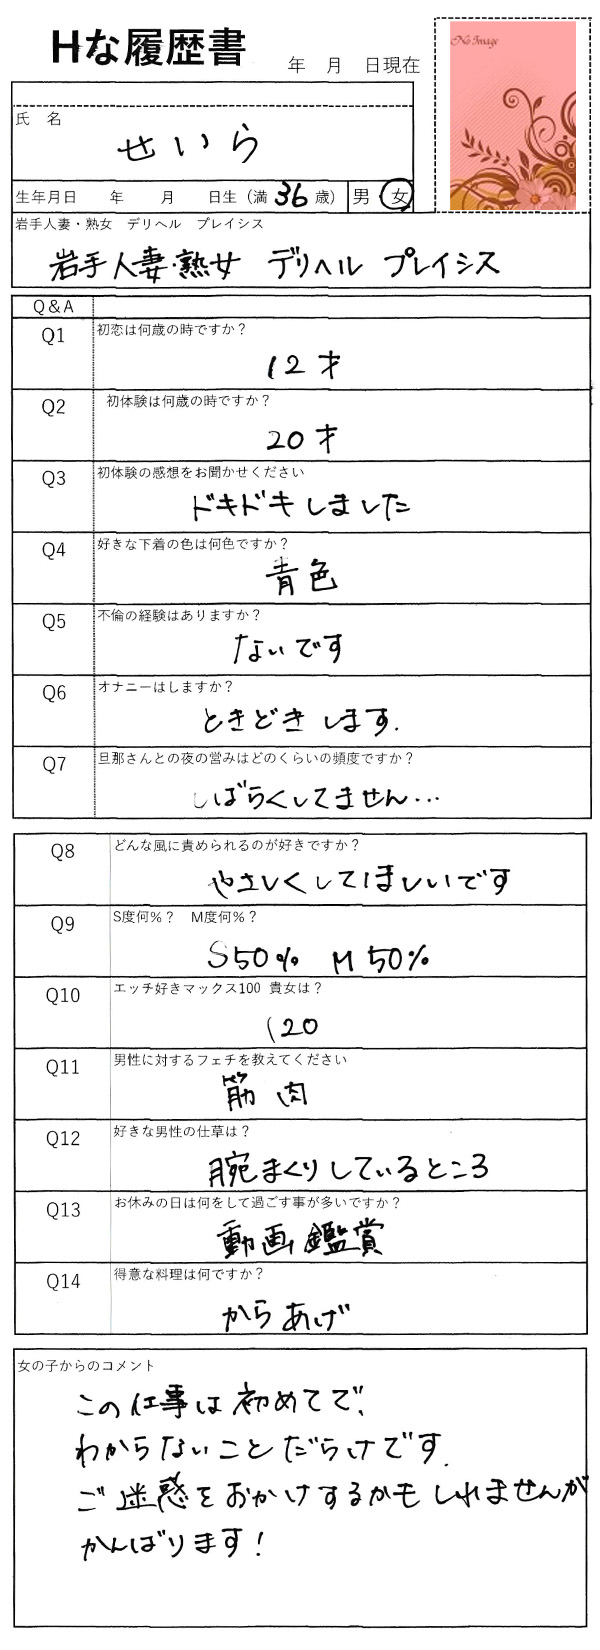 Hな履歴書
年 月 日現在
No Image
氏 名
せいら
生年月日 年 月 日生（満 36 歳） 男・女
岩手人妻・熟女 デリヘル プレイシス
岩手人妻・熟女 デリヘル プレイシス
Q&A
Q1 初恋は何歳の時ですか？
12才
Q2 初体験は何歳の時ですか？
20才
Q3 初体験の感想をお聞かせください
ドキドキしました
Q4 好きな下着の色は何色ですか？
青色
Q5 不倫の経験はありますか？
ないです
Q6 オナニーはしますか？
ときどきします.
Q7 旦那さんとの夜の営みはどのくらいの頻度ですか？
しばらくしてません…
Q8 どんな風に責められるのが好きですか？
やさしくしてほしいです
Q9 S度何%？ M度何%？
S50% M50%
Q10 エッチ好きマックス100 貴女は？
120
Q11 男性に対するフェチを教えてください
筋肉
Q12 好きな男性の仕草は？
腕まくりしているところ
Q13 お休みの日は何をして過ごす事が多いですか？
動画鑑賞
Q14 得意な料理は何ですか？
からあげ
女の子からのコメント
この仕事は初めてで、
わからないことだらけです.
ご迷惑をおかけするかもしれませんが
がんばります！